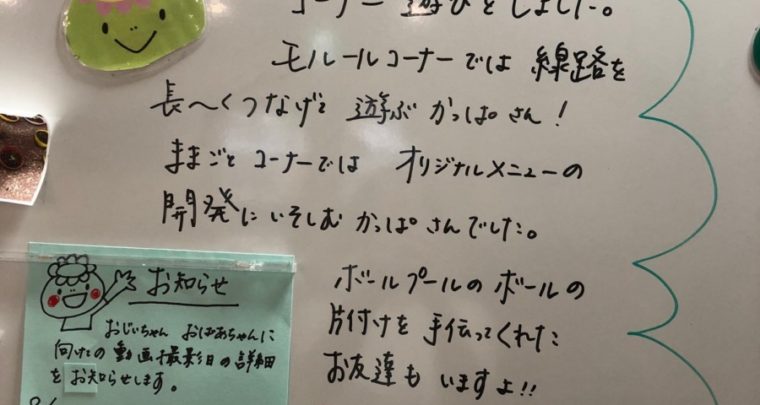 コーナー遊びをしました。
モルールコーナーでは 線路を
長〜くつなげて 遊ぶ かっぱさん！
ままごとコーナーでは オリジナルメニューの
開発にいそしむ かっぱさんでした。
ボールプールのボールの
片付けを 手伝ってくれた
お友達も いますよ!!
お知らせ
おじいちゃん おばあちゃんに
向けての動画撮影日の詳細
をお知らせします。